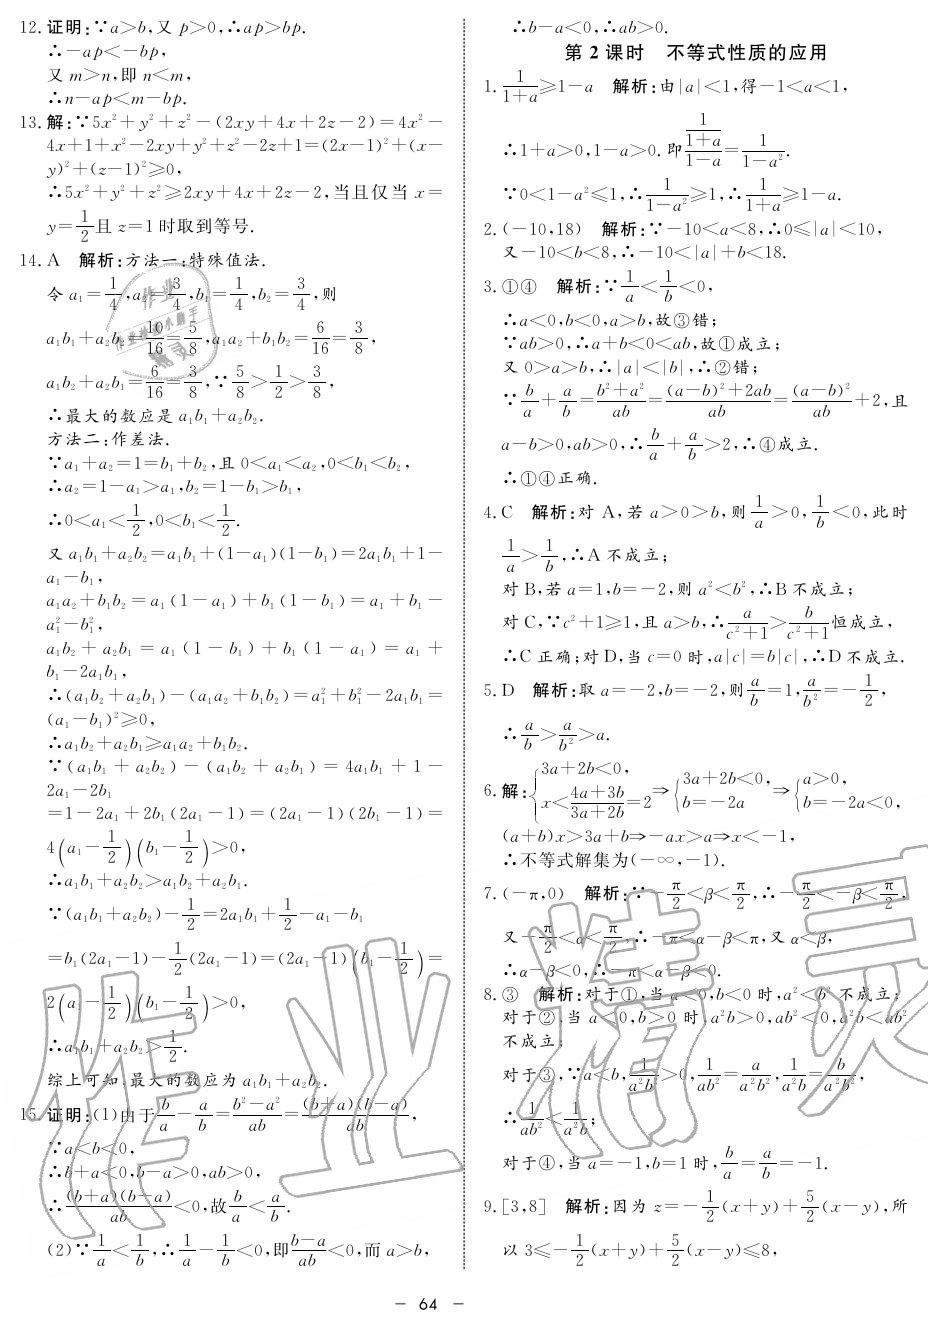 12. 证明:∵a>b,又 p>0,∴ap>bp.
∴-ap<-bp,
又 m>n,即 n<m,
∴n-ap<m-bp.
13. 解:∵5x²+y²+z²-(2xy+4x+2z-2)=4x²-
4x+1+x²-2xy+y²+z²-2z+1=(2x-1)²+(x-
y)²+(z-1)²≥0,
∴5x²+y²+z²≥2xy+4x+2z-2,当且仅当 x=
y=1/2且 z=1 时取到等号.
14. A 解析:方法一:特殊值法.
令 a₁=1/4,a₂=3/4,b₁=1/4,b₂=3/4,则
a₁b₁+a₂b₂=10/16=5/8,a₁a₂+b₁b₂=6/16=3/8,
a₁b₂+a₂b₁=6/16=3/8,∵5/8>1/2>3/8,
∴最大的数应是 a₁b₁+a₂b₂.
方法二:作差法.
∵a₁+a₂=1=b₁+b₂,且 0<a₁<a₂,0<b₁<b₂,
∴a₂=1-a₁>a₁,b₂=1-b₁>b₁,
∴0<a₁<1/2,0<b₁<1/2.
又 a₁b₁+a₂b₂=a₁b₁+(1-a₁)(1-b₁)=2a₁b₁+1-
a₁-b₁,
a₁a₂+b₁b₂=a₁(1-a₁)+b₁(1-b₁)=a₁+b₁-
a₁²-b₁²,
a₁b₂+a₂b₁=a₁(1-b₁)+b₁(1-a₁)=a₁+
b₁-2a₁b₁,
∴(a₁b₂+a₂b₁)-(a₁a₂+b₁b₂)=a₁²+b₁²-2a₁b₁=
(a₁-b₁)²≥0,
∴a₁b₂+a₂b₁≥a₁a₂+b₁b₂.
∵(a₁b₁+a₂b₂)-(a₁b₂+a₂b₁)=4a₁b₁+1-
2a₁-2b₁
=1-2a₁+2b₁(2a₁-1)=(2a₁-1)(2b₁-1)=
4(a₁-1/2)(b₁-1/2)>0,
∴a₁b₁+a₂b₂>a₁b₂+a₂b₁.
∵(a₁b₁+a₂b₂)-1/2=2a₁b₁+1/2-a₁-b₁
=b₁(2a₁-1)-1/2(2a₁-1)=(2a₁-1)(b₁-1/2)=
2(a₁-1/2)(b₁-1/2)>0,
∴a₁b₁+a₂b₂>1/2.
综上可知,最大的数应为 a₁b₁+a₂b₂.
15. 证明:(1)由于b/a-a/b=(b²-a²)/ab=(b+a)(b-a)/ab,
∵a<b<0,
∴b+a<0,b-a>0,ab>0,
∴(b+a)(b-a)/ab<0,故b/a<a/b.
(2)∵1/a<1/b,∴1/a-1/b<0,即(b-a)/ab<0,而 a>b,
∴b-a<0,∴ab>0.
第 2 课时 不等式性质的应用
1. 1/(1+a)≥1-a 解析:由|a|<1,得-1<a<1,
∴1+a>0,1-a>0.即(1/(1+a))/(1-a)=1/(1-a²).
∵0<1-a²≤1,∴1/(1-a²)≥1,∴1/(1+a)≥1-a.
2. (-10,18) 解析:∵-10<a<8,∴0≤|a|<10,
又-10<b<8,∴-10<|a|+b<18.
3. ①④ 解析:∵1/a<1/b<0,
∴a<0,b<0,a>b,故③错;
∵ab>0,∴a+b<0<ab,故①成立;
又 0>a>b,∴|a|<|b|,∴②错;
∵b/a+a/b=(b²+a²)/ab=((a-b)²+2ab)/ab=(a-b)²/ab+2,且
a-b>0,ab>0,∴b/a+a/b>2,∴④成立.
∴①④正确.
4. C 解析:对 A,若 a>0>b,则1/a>0,1/b<0,此时
1/a>1/b,∴A 不成立;
对 B,若 a=1,b=-2,则 a²<b²,∴B 不成立;
对 C,∵c²+1≥1,且 a>b,∴a/(c²+1)>b/(c²+1)恒成立,
∴C 正确;对 D,当 c=0 时,a|c|=b|c|,∴D 不成立.
5. D 解析:取 a=-2,b=-2,则a/b=1,a/b²=-1/2,
∴a/b>a/b²>a.
6. 解:{3a+2b<0, x<(4a+3b)/(3a+2b)=2⇒{3a+2b<0, b=-2a⇒{a>0, b=-2a<0,
(a+b)x>3a+b⇒-ax>a⇒x<-1,
∴不等式解集为(-∞,-1).
7. (-π,0) 解析:∵-π/2<β<π/2,∴-π/2<-β<π/2,
又-π/2<α<π/2,∴-π<α-β<π,又 α<β,
∴α-β<0,∴-π<α-β<0.
8. ③ 解析:对于①,当 a<0,b<0 时,a²<b² 不成立;
对于②,当 a<0,b>0 时,a²b>0,ab²<0,a²b<ab²
不成立;
对于③,∵a<b,1/a²b²>0,1/ab²=a/a²b²,1/a²b=b/a²b²,
∴1/ab²<1/a²b;
对于④,当 a=-1,b=1 时,b/a=a/b=-1.
9. [3,8] 解析:因为 z=-1/2(x+y)+5/2(x-y),所
以 3≤-1/2(x+y)+5/2(x-y)≤8,
- 64 -
作业精灵